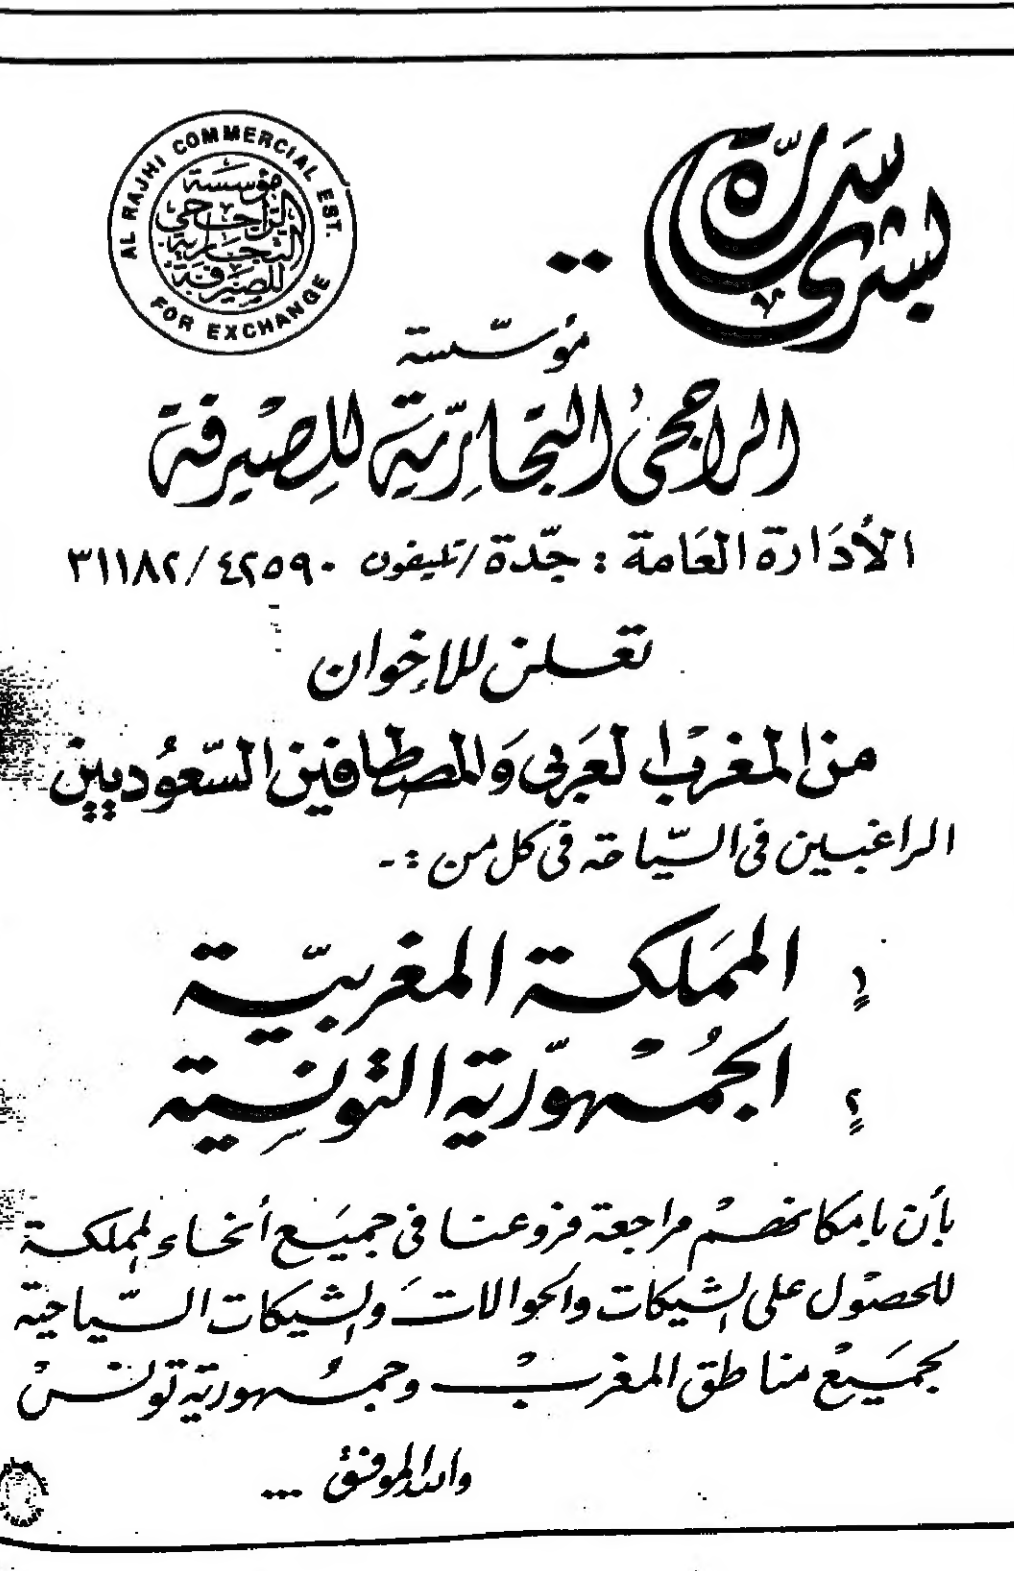 بشرى سارة ..
AL RAJHI COMMERCIAL EST.
FOR EXCHANGE
مؤسسة
الراجحي
التجارية
للصيرفة
مؤسّسة
الراجحى التجارية للصيرفة
الأدارة العامة : جدّة / تليفون ٤٢٥٩٠ / ٣١١٨٢
تعلن للإخوان
من المغرب العربى والمصطافين السّعوديين
الراغبين فى السّياحة فى كل من :-
١ٍ المملكة المغربيّة
٢ٍ الجمهوريّة التونسية
بأن بامكانهم مراجعة فروعنا فى جميع أنحاء المملكة
للحصول على الشيكات والحوالات والشيكات السّياحية
لجميع مناطق المغرب وجمهورية تونس
والله الموفق ...
TIHAMA